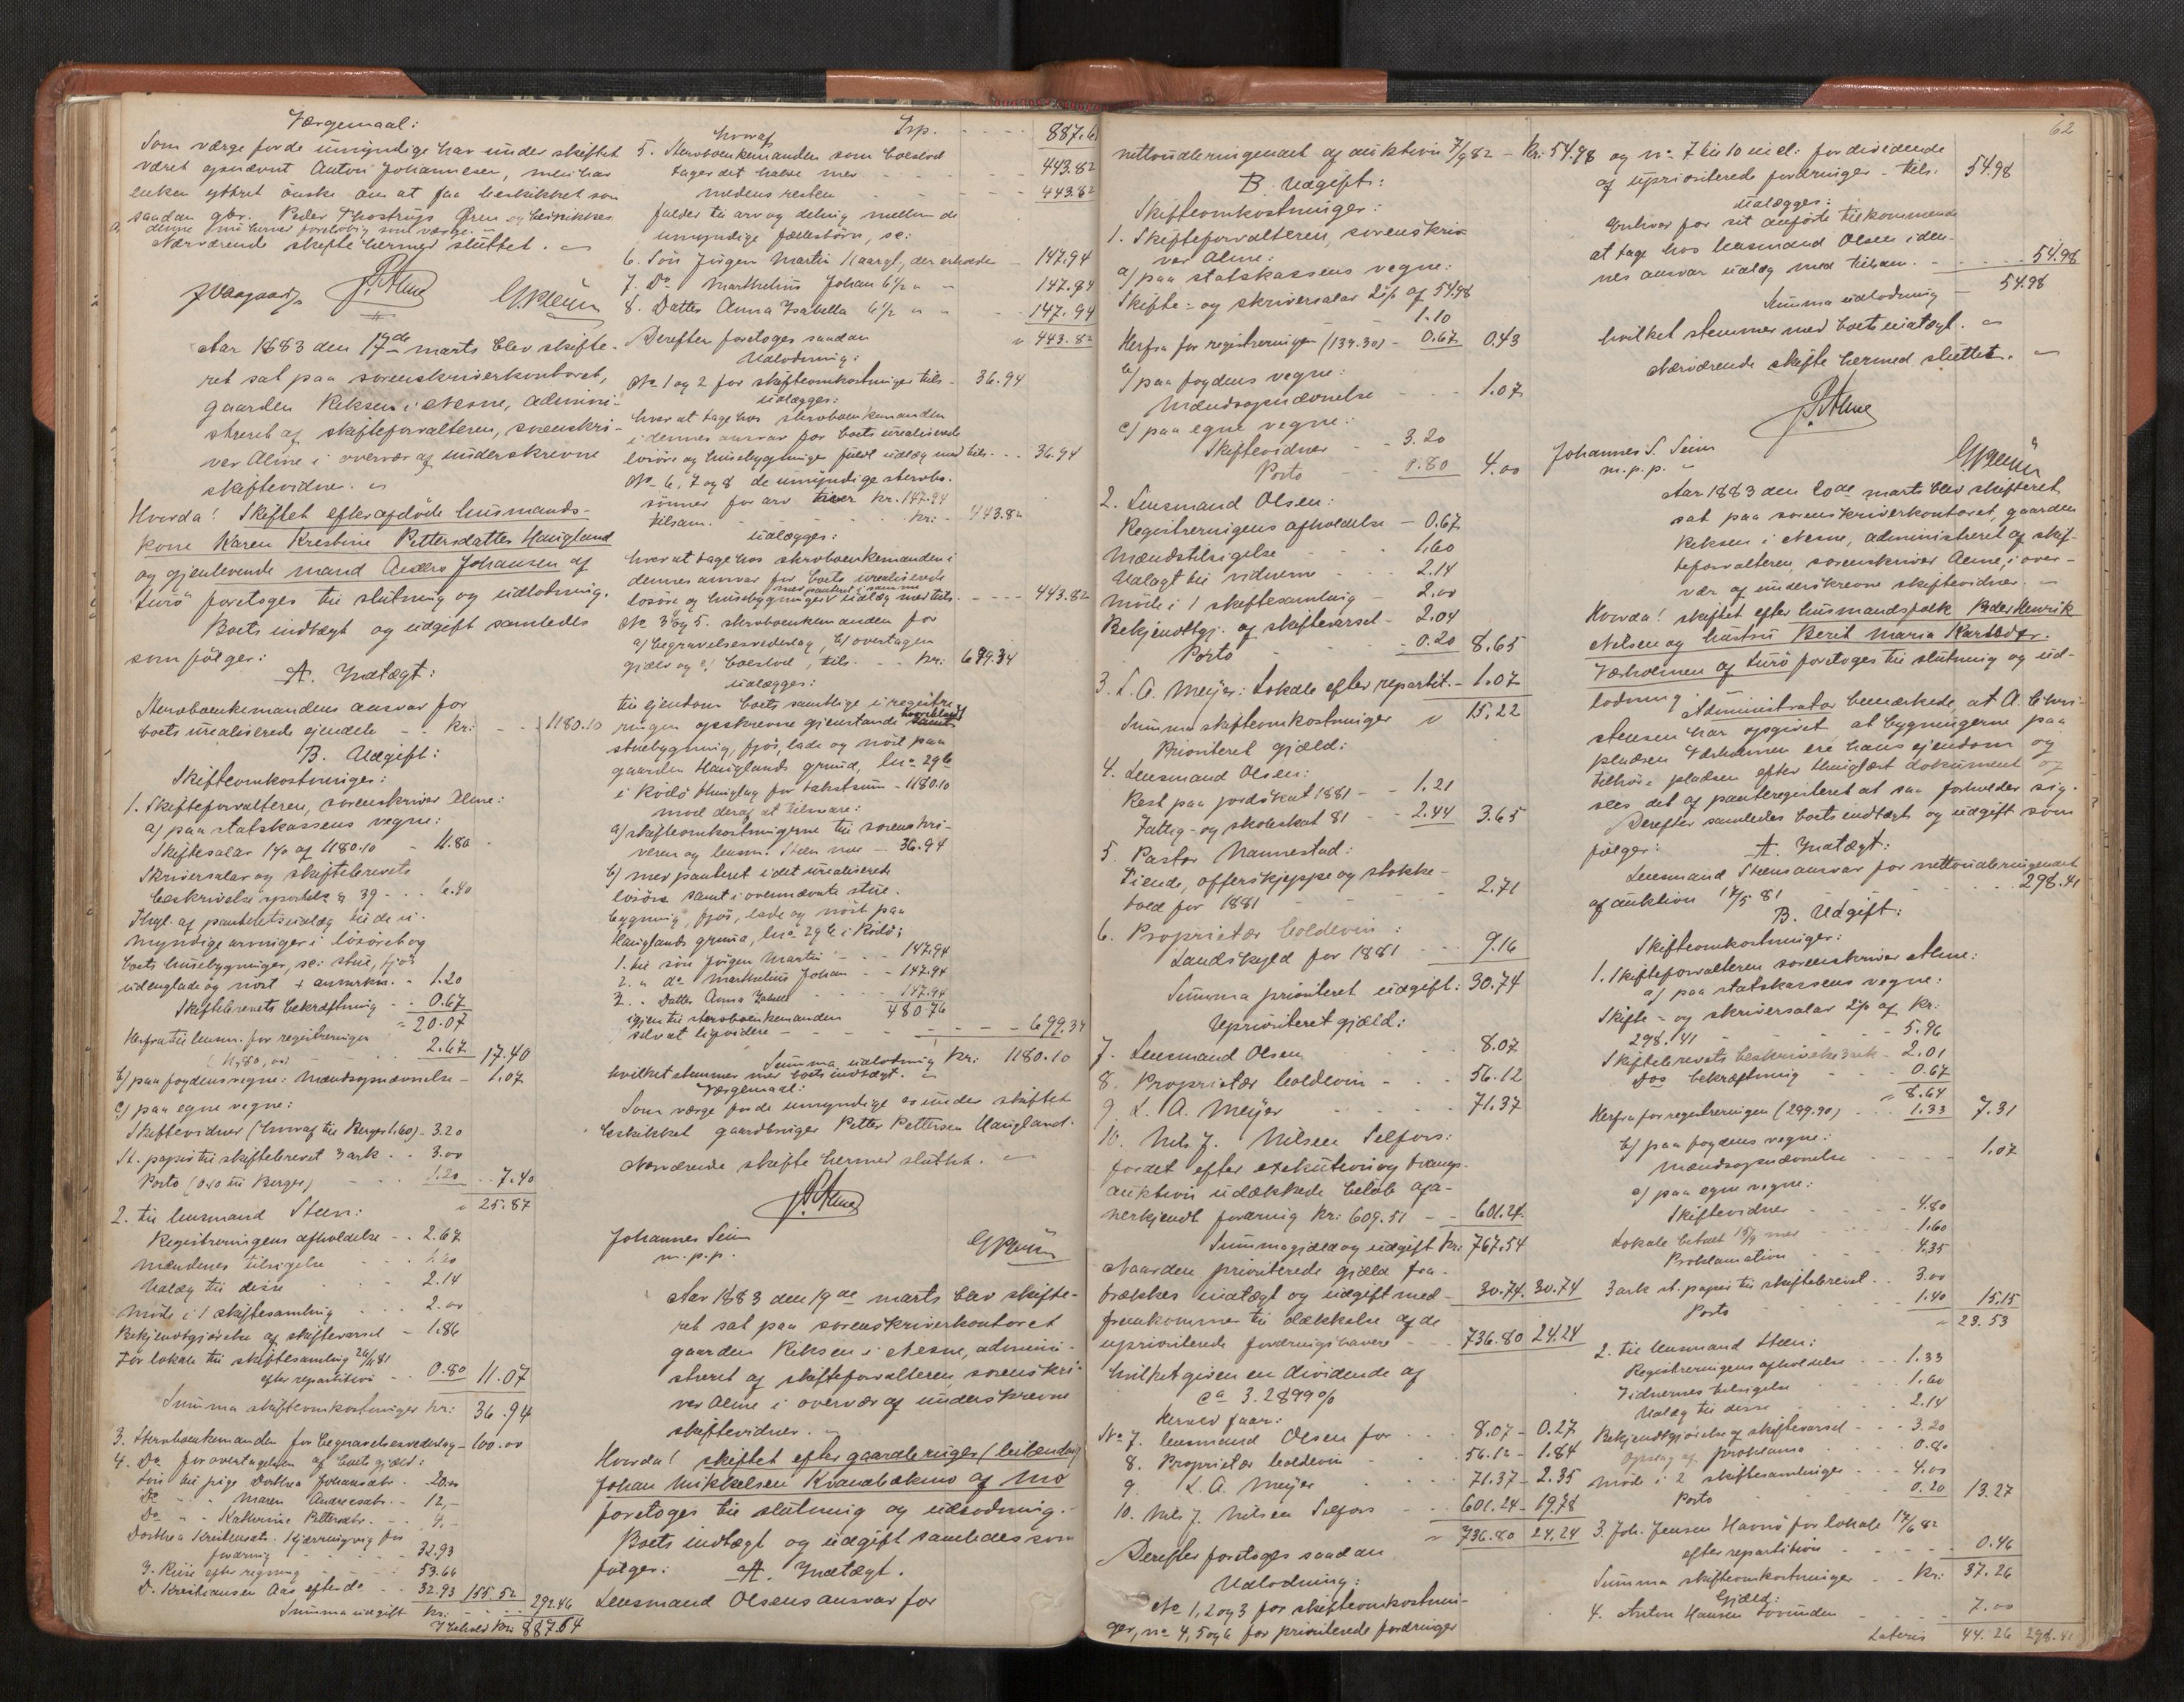 Værgemaal:
Som værge for de umyndige har under skiftet
været opnævnt Anton Johannesen, men har
enken yttret önske om at faa beskikket som
saadan gbr. Peder Thostrups Ören og beskikkes
denne som herved foreløbig som værge.
Nærværende skifte hermed sluttet.
Aar 1883 den 17de marts blev skifte-
ret sat paa sorenskriverkontoret,
gaarden Riksen i Nesne, admini-
streret af skifteforvalteren, sorenskri-
ver Alme i overvær af underskrevne
skiftevidner.
Hvorda! Skiftet efter afdöde husmands-
kone Karen Kristine Pettersdatter Haugland
og gjenlevende mand Anders Johansen af
Lurö foretoges til slutning og udlodning.
Boets indtægt og udgift samledes
som fölger:
A. Indtægt:
Sterboenkemandens ansvar for
boets urealiserede ejendele - kr: 1180.10
B. Udgift:
Skifteomkostninger:
1. Skifteforvalteren, sorenskriver Alme:
a) paa statskassens vegne:
Skiftesalar 1% af 1180.10 - 11.80
Skriversalar og skiftebrevets
beskrivelse sportels § 39 - 6.40
Thgl. af panteretsudlæg til de u-
myndige arvinger i lösöret og
boets husebygninger, sc: stue, fjös
udenglade og nöst + anmerkn. - 1.20
Skiftebrevets bekræftning - 0.67
20.07
Herfra til lensm. for registreringen
2.67 17.40
b) paa fogdens vegne: Mændsopnævnelse - 1.07
c) paa egne vegne:
Skiftevidner (hvoraf til Berger 1.60) - 3.20
St. papir til skiftebrevet 3 ark - 3.00
Porto (0.40 til Berger) 1.20 7.40
25.87
2. til lensmand Steen:
Registreringens afholdelse - 2.67
Mændenes tilsigelse 1.60
Udlæg til disse 2.14
Möde i 1 skiftesamling 2.00
Bekjendtgjörelse af skiftevarsel - 1.86
For lokale til skiftesamling 26/11 81
efter repartition - 0.80 11.07
Summa skifteomkostninger kr: 36.94
3. Sterboenkemanden for begravelsesvederlag - 100.00
4. Do for overtagelsen af boets gjæld:
Lön til pige Dorthea Johansdtr. 20.00
Do - Maren Andreasdtr. - 12,-
Do - Katherine Pettersdtr. - 4,-
Dorthea Kristensdtr. Kjærringvig for
fordring 32.93
J. Riise efter regning 53.66
D. Kristiansen Aas efter do 32.93 155.52 292.46
Summa udgift kr:
I behold kr: 887.64
Trp. 887.6
hvoraf
5. Sterboenkemanden som boeslod
tager det halve med 443.82
medens resten 443.82
falder til arv og deling mellem de
umyndige fællesbörn, sc:
6. Sön Jörgen Martin Kaarsf., der erholder - 147.94
7. Do Marthelius Johan 6 1/2 147.94
8. Datter Anna Isabella 6 1/2 147.94
443.82
Derefter foretoges saadan
Udlodning:
No 1 og 2 for skifteomkostninger tils - 36.94
udlægges:
hver at tage hos sterboenkemanden
i dennes ansvar for boets urealiserede
lösöre og husebygninger fuldt udlæg med tils - 36.94
No 6, 7 og 8 de umyndige sterbo-
sönner for arv hver kr. 147.94
tilsam. kr: 443.82
udlægges:
hver at tage hos sterboenkemanden i
dennes ansvar for boets urealiserede
lösöre og husebygninger med panteret i samme udlæg med tils. 443.82
No 3 og 5. sterboenkemanden for
a) begravelsesvederlag, b) overtagen
gjæld og c) boeslod, tils. - kr: 699.34
udlægges:
til ejendom boets samtlige i registre-
ringen opskrevne gjenstande
stuebygning, fjös, lade og nöst paa
gaarden Hauglands grund, lno 29b
i Rodö thinglag for takstsum - 1180.10
mod deraf at tilsvare:
a) skifteomkostningerne til sorenskri-
veren og lensm. Steen med - 36.94
b) med panteret i det urealiserede
lösöre samt i ovennævnte stue-
bygning, fjös, lade og nöst paa
Hauglands grund, lno 29b i Rodö:
1. til sön Jörgen Martin - 147.94
2. " do Marthelius Johan - 147.94
3. " Datter Anna Isabella 147.94
480.76
igjen til sterboenkemanden
selv at liqvidere 699.34
Summa udlodning kr: 1180.10
hvilket stemmer med boets indtægt.
Værgemaal:
Som værge for de umyndige er under skiftet
beskikket gaardbruger Petter Pettersen Haugland.
Nærværende skifte hermed sluttet.
Johannes Sem
m.p.p.
Aar 1883 den 19de marts blev skifte-
ret sat paa sorenskriverkontoret
gaarden Riksen i Nesne, admini-
streret af skifteforvalteren, sorenskri-
ver Alme i overvær af underskrevne
skiftevidner.
Hvorda! skiftet efter gaardbruger (leilending)
Johan Mikkelsen Kvandbækmo af Mo
foretoges til slutning og udlodning.
Boets indtægt og udgift samledes som
fölger: A. Indtægt.
Lensmand Olsens ansvar for
62
nettoudbringendet af auktion 7/9 82 - kr: 54.98
B. Udgift:
Skifteomkostninger:
1. Skifteforvalteren, sorenskri-
ver Alme:
a) paa statskassens vegne:
Skifte- og skriversalar 2% af 54.98
1.10
Herfra for registreringen (134.30) - 0.67 0.43
b) paa fogdens vegne:
Mændsopnævnelse 1.07
c) paa egne vegne:
Skiftevidner 3.20
Porto 0.80 4.00
2. Lensmand Olsen:
Registreringens afholdelse - 0.67
Mændstilsigelse 1.60
Udlagt til vidnerne 2.14
Möde i 1 skiftesamling - 2.00
Bekjendtgj. af skiftevarsel - 2.04
Porto 0.20 8.65
3. L. A. Meyer: Lokale efter repartit. - 1.07
Summa skifteomkostninger 15.22
Prioriteret gjæld:
4. Lensmand Olsen:
Rest paa jordskat 1881 - 1.21
Fattig- og skoleskat 81 2.44 3.65
5. Pastor Nannestad:
Tiende, offerskjeppe og stokke-
told for 1881 2.71
6. Proprietær Coldevin:
Landskyld for 1881 9.16
Summa prioriteret udgift: 30.74
Uprioriteret gjæld:
7. Lensmand Olsen 8.07
8. Proprietær Coldevin - 56.12
9. L. A. Meyer 71.37
10. Nils J. Nilsen Selfors:
for det efter exekution og tvangs-
auktion udækkede belöb af a-
nerkjendt fordring kr: 609.51 - 601.24
Summa gjæld og udgift kr: 767.54
Naar den prioriterede gjæld fra-
trækkes indtægt og udgift med - 30.74 30.74
fremkommer til dækkelse af de
uprioriterede fordringshavere 736.80 24.24
hvilket giver en dividende af
ca 3.2899%
Herved faar:
No 7. lensmand Olsen for 8.07 - 0.27
8. Proprietær Coldevin 56.12 - 1.84
9. L. A. Meyer 71.37 - 2.35
10. Nils J. Nilsen Selfors 601.24 - 19.78
736.80 24.24
Derefter foretoges saadan
Udlodning:
No 1, 2 og 3 for skifteomkostnin-
ger, no 4, 5 og 6 for prioriterede fordringer
og no 7 til 10 incl: for dividende
af uprioriterede fordringer - tils. 54.98
udlægges:
enhver for sit anförte tilkommende
at tage hos lensmand Olsen i den-
nes ansvar udlæg med tilsam. 54.98
Summa udlodning 54.98
hvilket stemmer med boets indtægt.
Nærværende skifte hermed sluttet.
Johannes S. Sem
m.p.p.
Aar 1883 den 20de marts blev skifteret
sat paa sorenskriverkontoret, gaarden
Riksen i Nesne, administreret af skif-
teforvalteren, sorenskriver Alme, i over-
vær af underskrevne skiftevidner.
Hvorda! skiftet efter husmandsfolk Peder Henrik
Nilsen og hustru Berit Maria Karlsdtr.
Værholmen af Lurö foretoges til slutning og ud-
lodning. Administrator bemærkede, at A. Chri-
stensen har opgivet at bygningerne paa
pladsen Værholmen ere hans ejendom og
tilhöre pladsen efter thinglæst dokument og
sees det af panteregisteret at saa forholder sig.
Derefter samledes boets indtægt og udgift som
fölger: A. Indtægt:
Lensmand Steens ansvar for nettoudbringendet
af auktion 17/5 81 298.41
B. Udgift:
Skifteomkostninger:
1. Skifteforvalteren sorenskriver Alme:
a) paa statskassens vegne:
Skifte- og skriversalar 2% af kr:
298.41 - 5.96
Skiftebrevets beskrivelse 3 ark - 2.01
Dos bekræftning 0.67
8.64
Herfra for registreringen (299.90) 1.33 7.31
b) paa fogdens vegne:
Mændsopnævnelse 1.07
c) paa egne vegne:
Skiftevidner 4.80
Lokale betalt 15/9 med 1.60
Proklamation 4.35
3 ark st. papir til skiftebrevet 3.00
Porto 1.40 15.15
23.53
2. til lensmand Steen:
Registreringens afholdelse 1.33
Vidnernes tilsigelse 1.60
Udlæg til disse 2.14
Bekjendtgjörelse af skiftevarsel 3.20
Opslag af proklama 0.80
Möde i 2 skiftesamlinger 4.00
Porto 0.20 13.27
3. Joh. Jensen Havnö for lokale 17/6 82
efter repartition 0.46
Summa skifteomkostninger kr: 37.26
Gjæld:
4. Anton Hansen Lovunden 7.00
Lateris 44.26 298.41